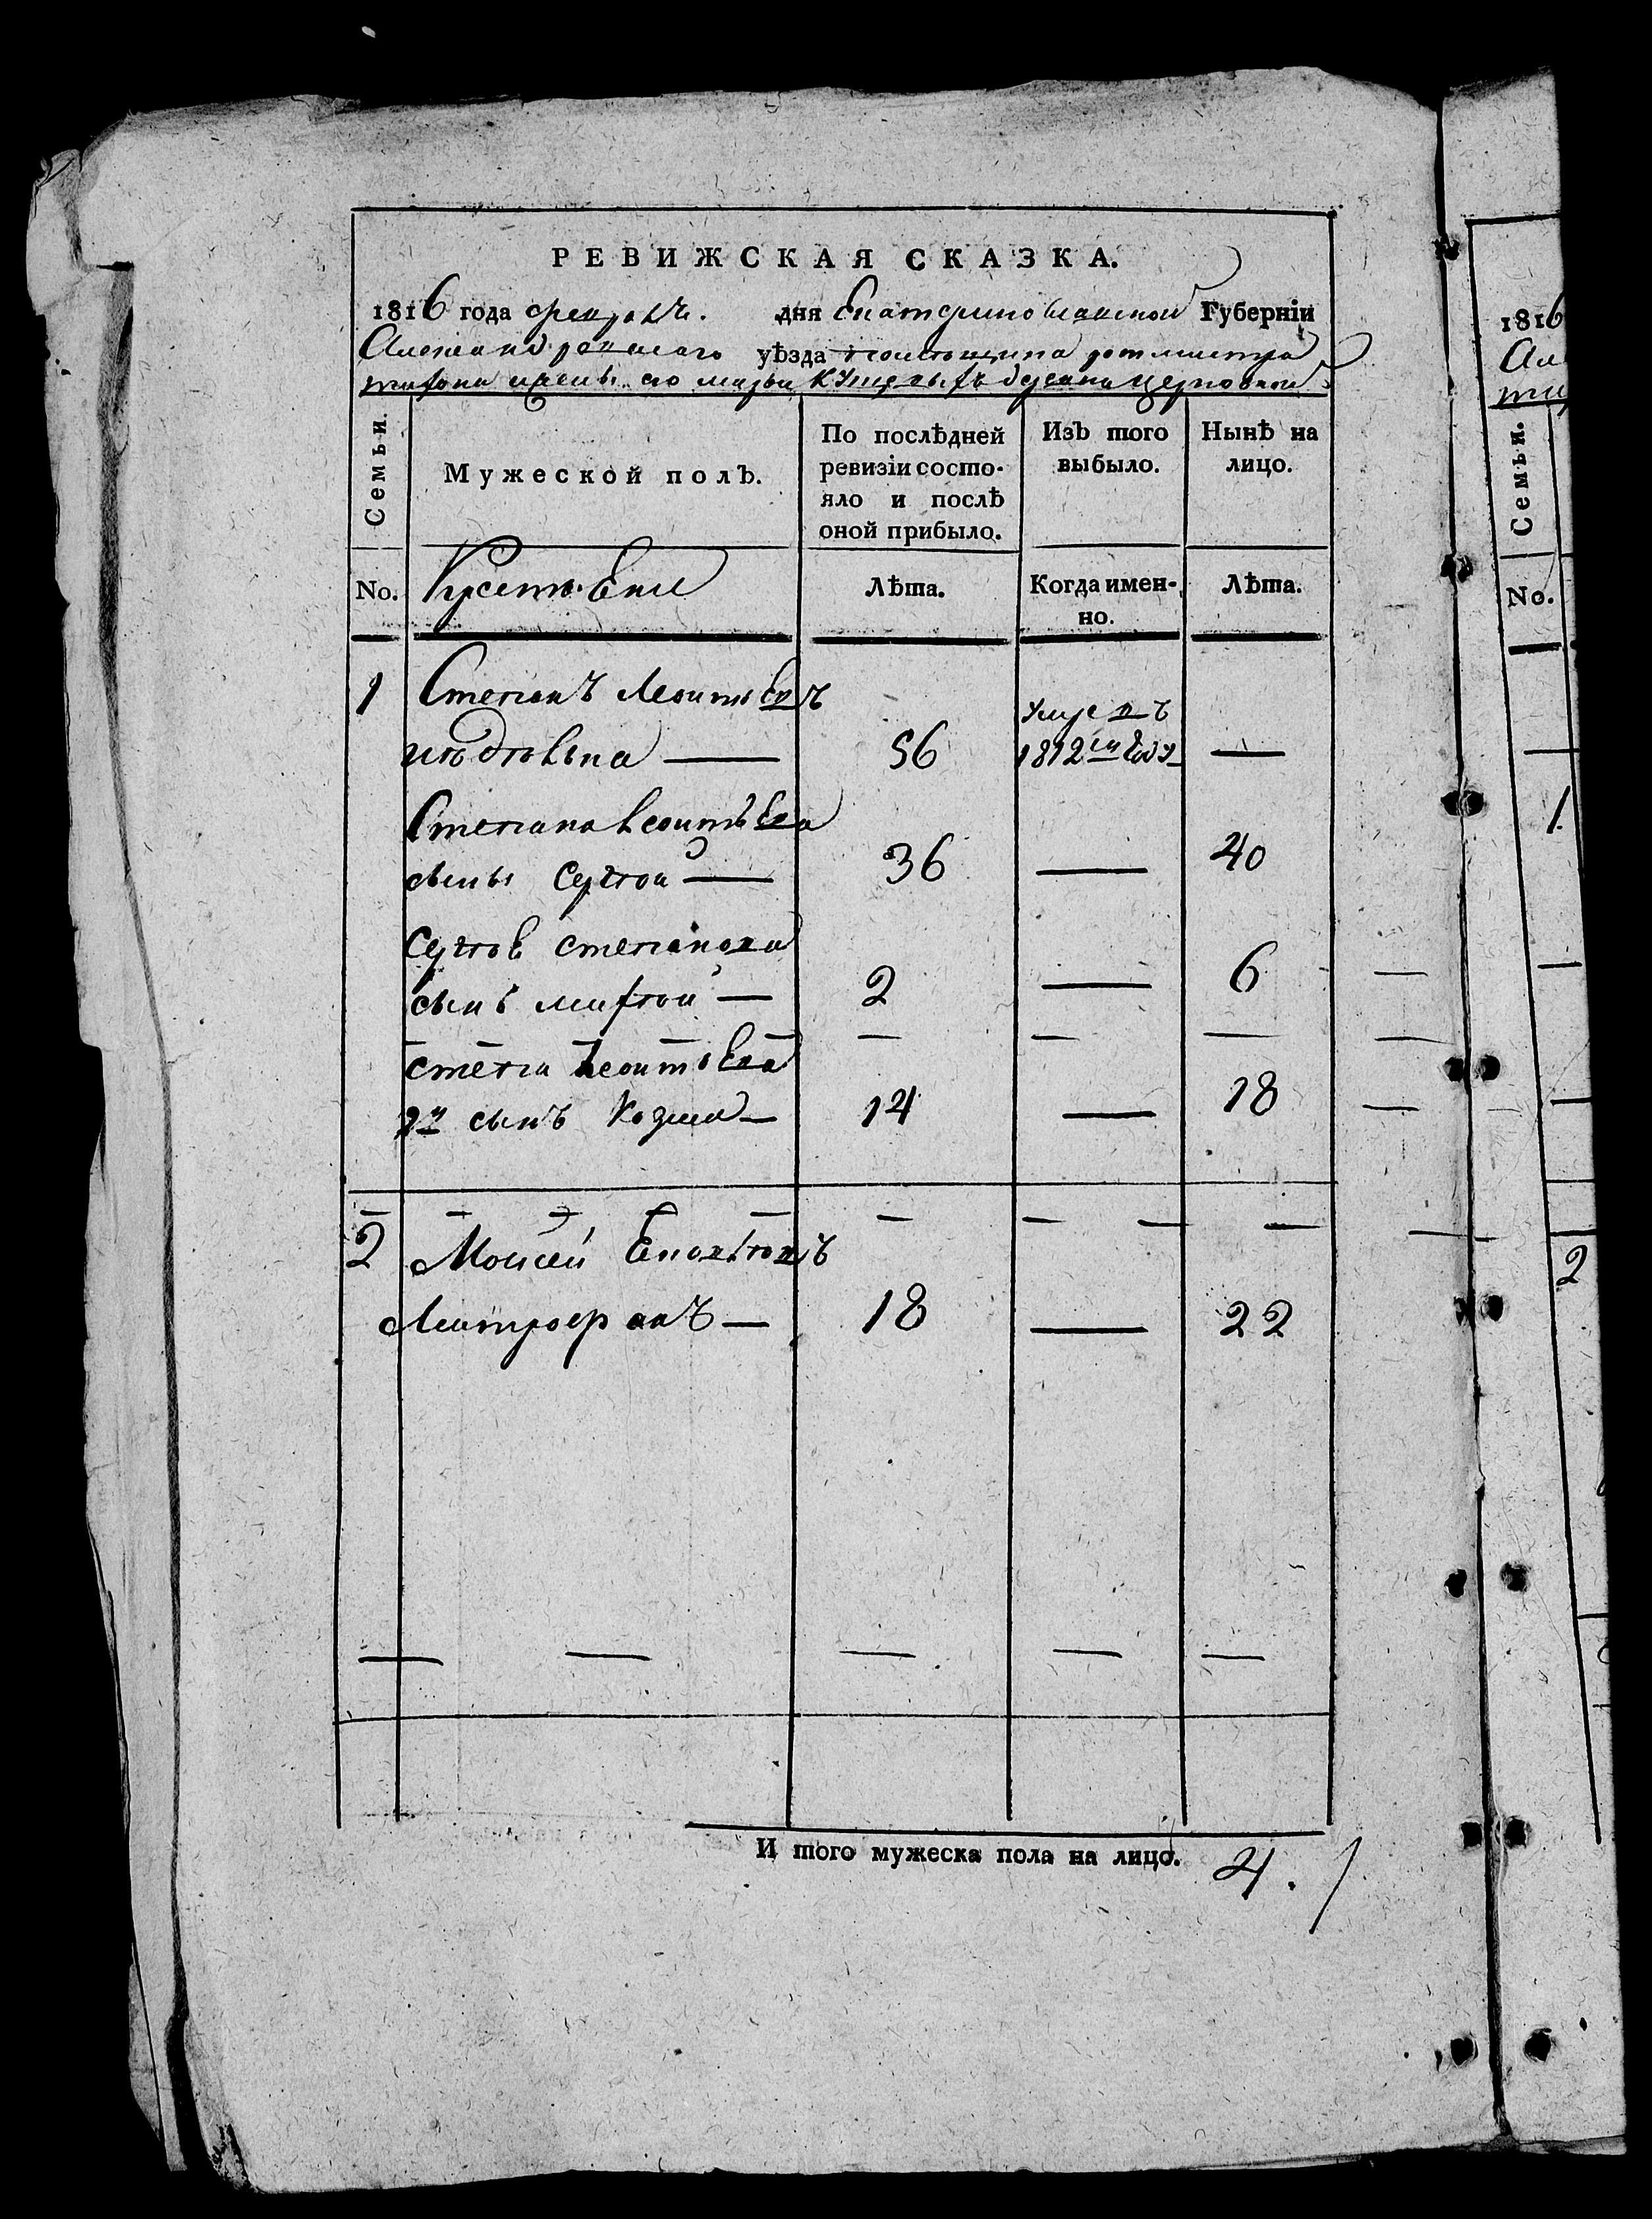 РЕВИЖСКАЯ СКАЗКА.
1816 года февраля. дня Екатеринославской Губерніи
Александровскаго уѣзда помѣщика ротмистра
жены его марьи
Семьи.
Мужеской полъ.
По послѣдней ревизіи состо-
яло и послѣ
оной прибыло.
Изъ того
выбыло.
Нынѣ на
лицо.
No. Крестьяне Лѣта. Когда имен-
но. Лѣта.
1 Степанъ Леонтьевъ
56 умре въ
1812м году —
Степана леонтьева
сыны Сергѣй — 36 — 40
Сергѣя степанова
сынъ — 2 — 6
степа леонтьева
2й сынъ Козма — 14 — 18
2 Моисей
Митрофанъ — 18 — 22
И того мужеска пола на лицо. 4.
1816
Семьи.
No.
1.
2